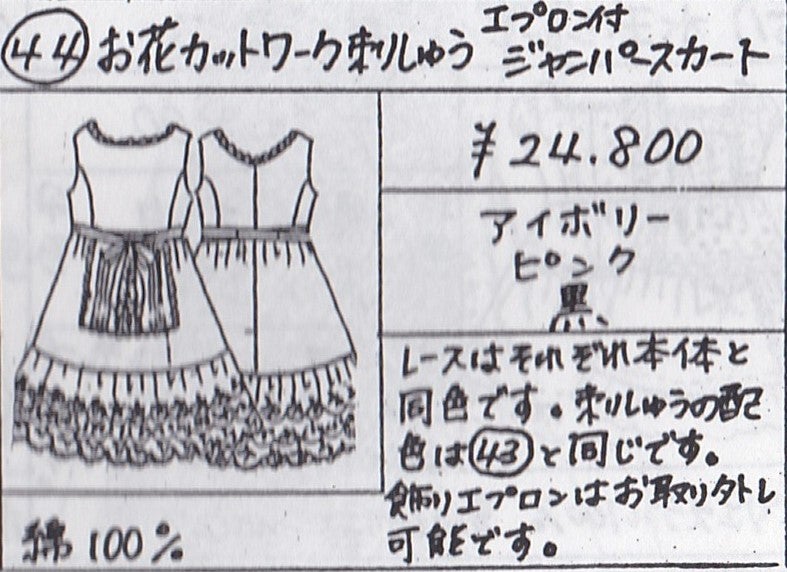 ㊹お花カットワーク刺しゅう エプロン付
ジャンパースカート
¥24.800
アイボリー
ピンク
黒
レースはそれぞれ本体と
同色です。刺しゅうの配
色は㊸と同じです。
飾りエプロンはお取り外し
可能です。
綿100%